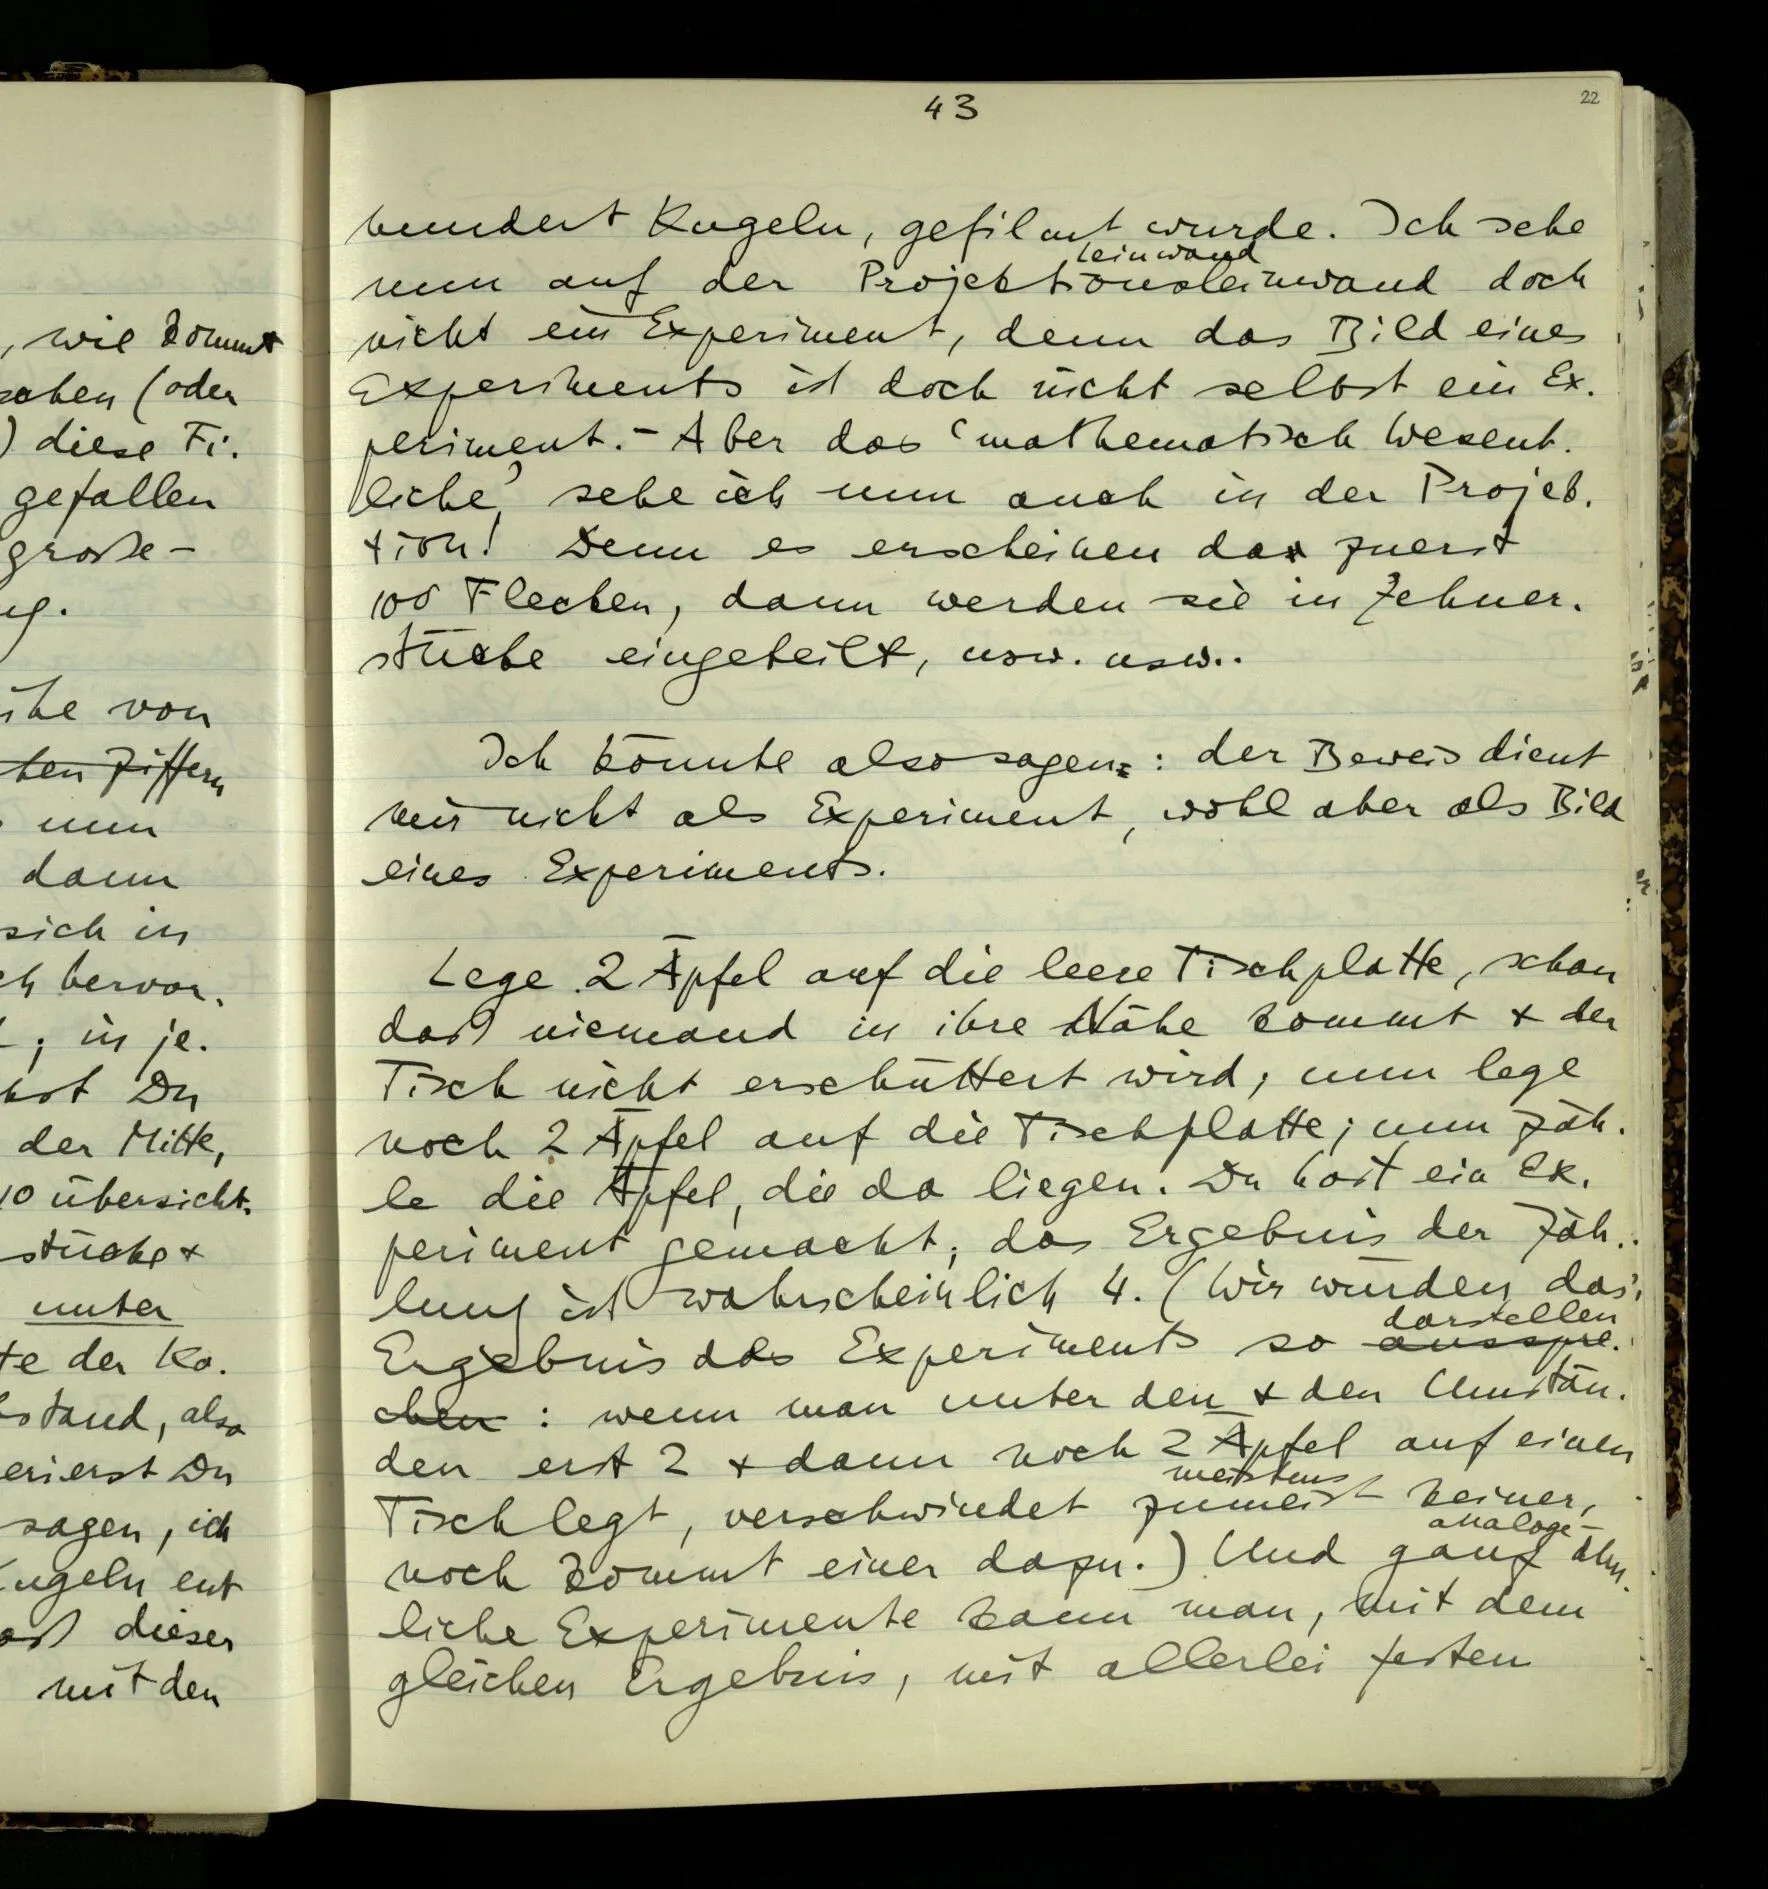 43
22
hundert Kugeln, gefilmt wurde. Ich sehe
leinwand
nun auf der Projektionsleinwand doch
nicht ein Experiment, denn das Bild eines
Experiments ist doch nicht selbst ein Ex.
periment. – Aber das ‘mathematisch Wesent.
liche’ sehe ich nun auch in der Projek.
tion! Denn es erscheinen da zuerst
100 Flecken, dann werden sie in Zehner.
stücke eingeteilt, usw. usw..
Ich könnte also sagen: der Beweis dient
mir nicht als Experiment, wohl aber als Bild
eines Experiments.
Lege 2 Äpfel auf die leere Tischplatte, schau
daß niemand in ihre Nähe kommt & der
Tisch nicht erschüttert wird; nun lege
noch 2 Äpfel auf die Tischplatte; nun zäh.
le die Äpfel, die da liegen. Du hast ein Ex.
periment gemacht; das Ergebnis der Zäh.
lung ist wahrscheinlich 4. (Wir würden das
darstellen
Ergebnis des Experiments so ausspre.
chen: wenn man unter den & den Umstän.
den erst 2 & dann noch 2 Äpfel auf einen
meistens
Tisch legt, verschwindet zumeist keiner,
analoge
noch kommt einer dazu.) Und ganz ähn.
liche Experimente kann man, mit dem
gleichen Ergebnis, mit allerlei festen
, wie kommt
(oder
) diese Fi.
gefallen
große –
von
Ziffern
nun
dann
sich in
hervor.
; in je.
Du
der Mitte,
10 übersicht.
stücke &
unter
der Ko.
also
Du
sagen, ich
Kugeln ent
dieser
mit den